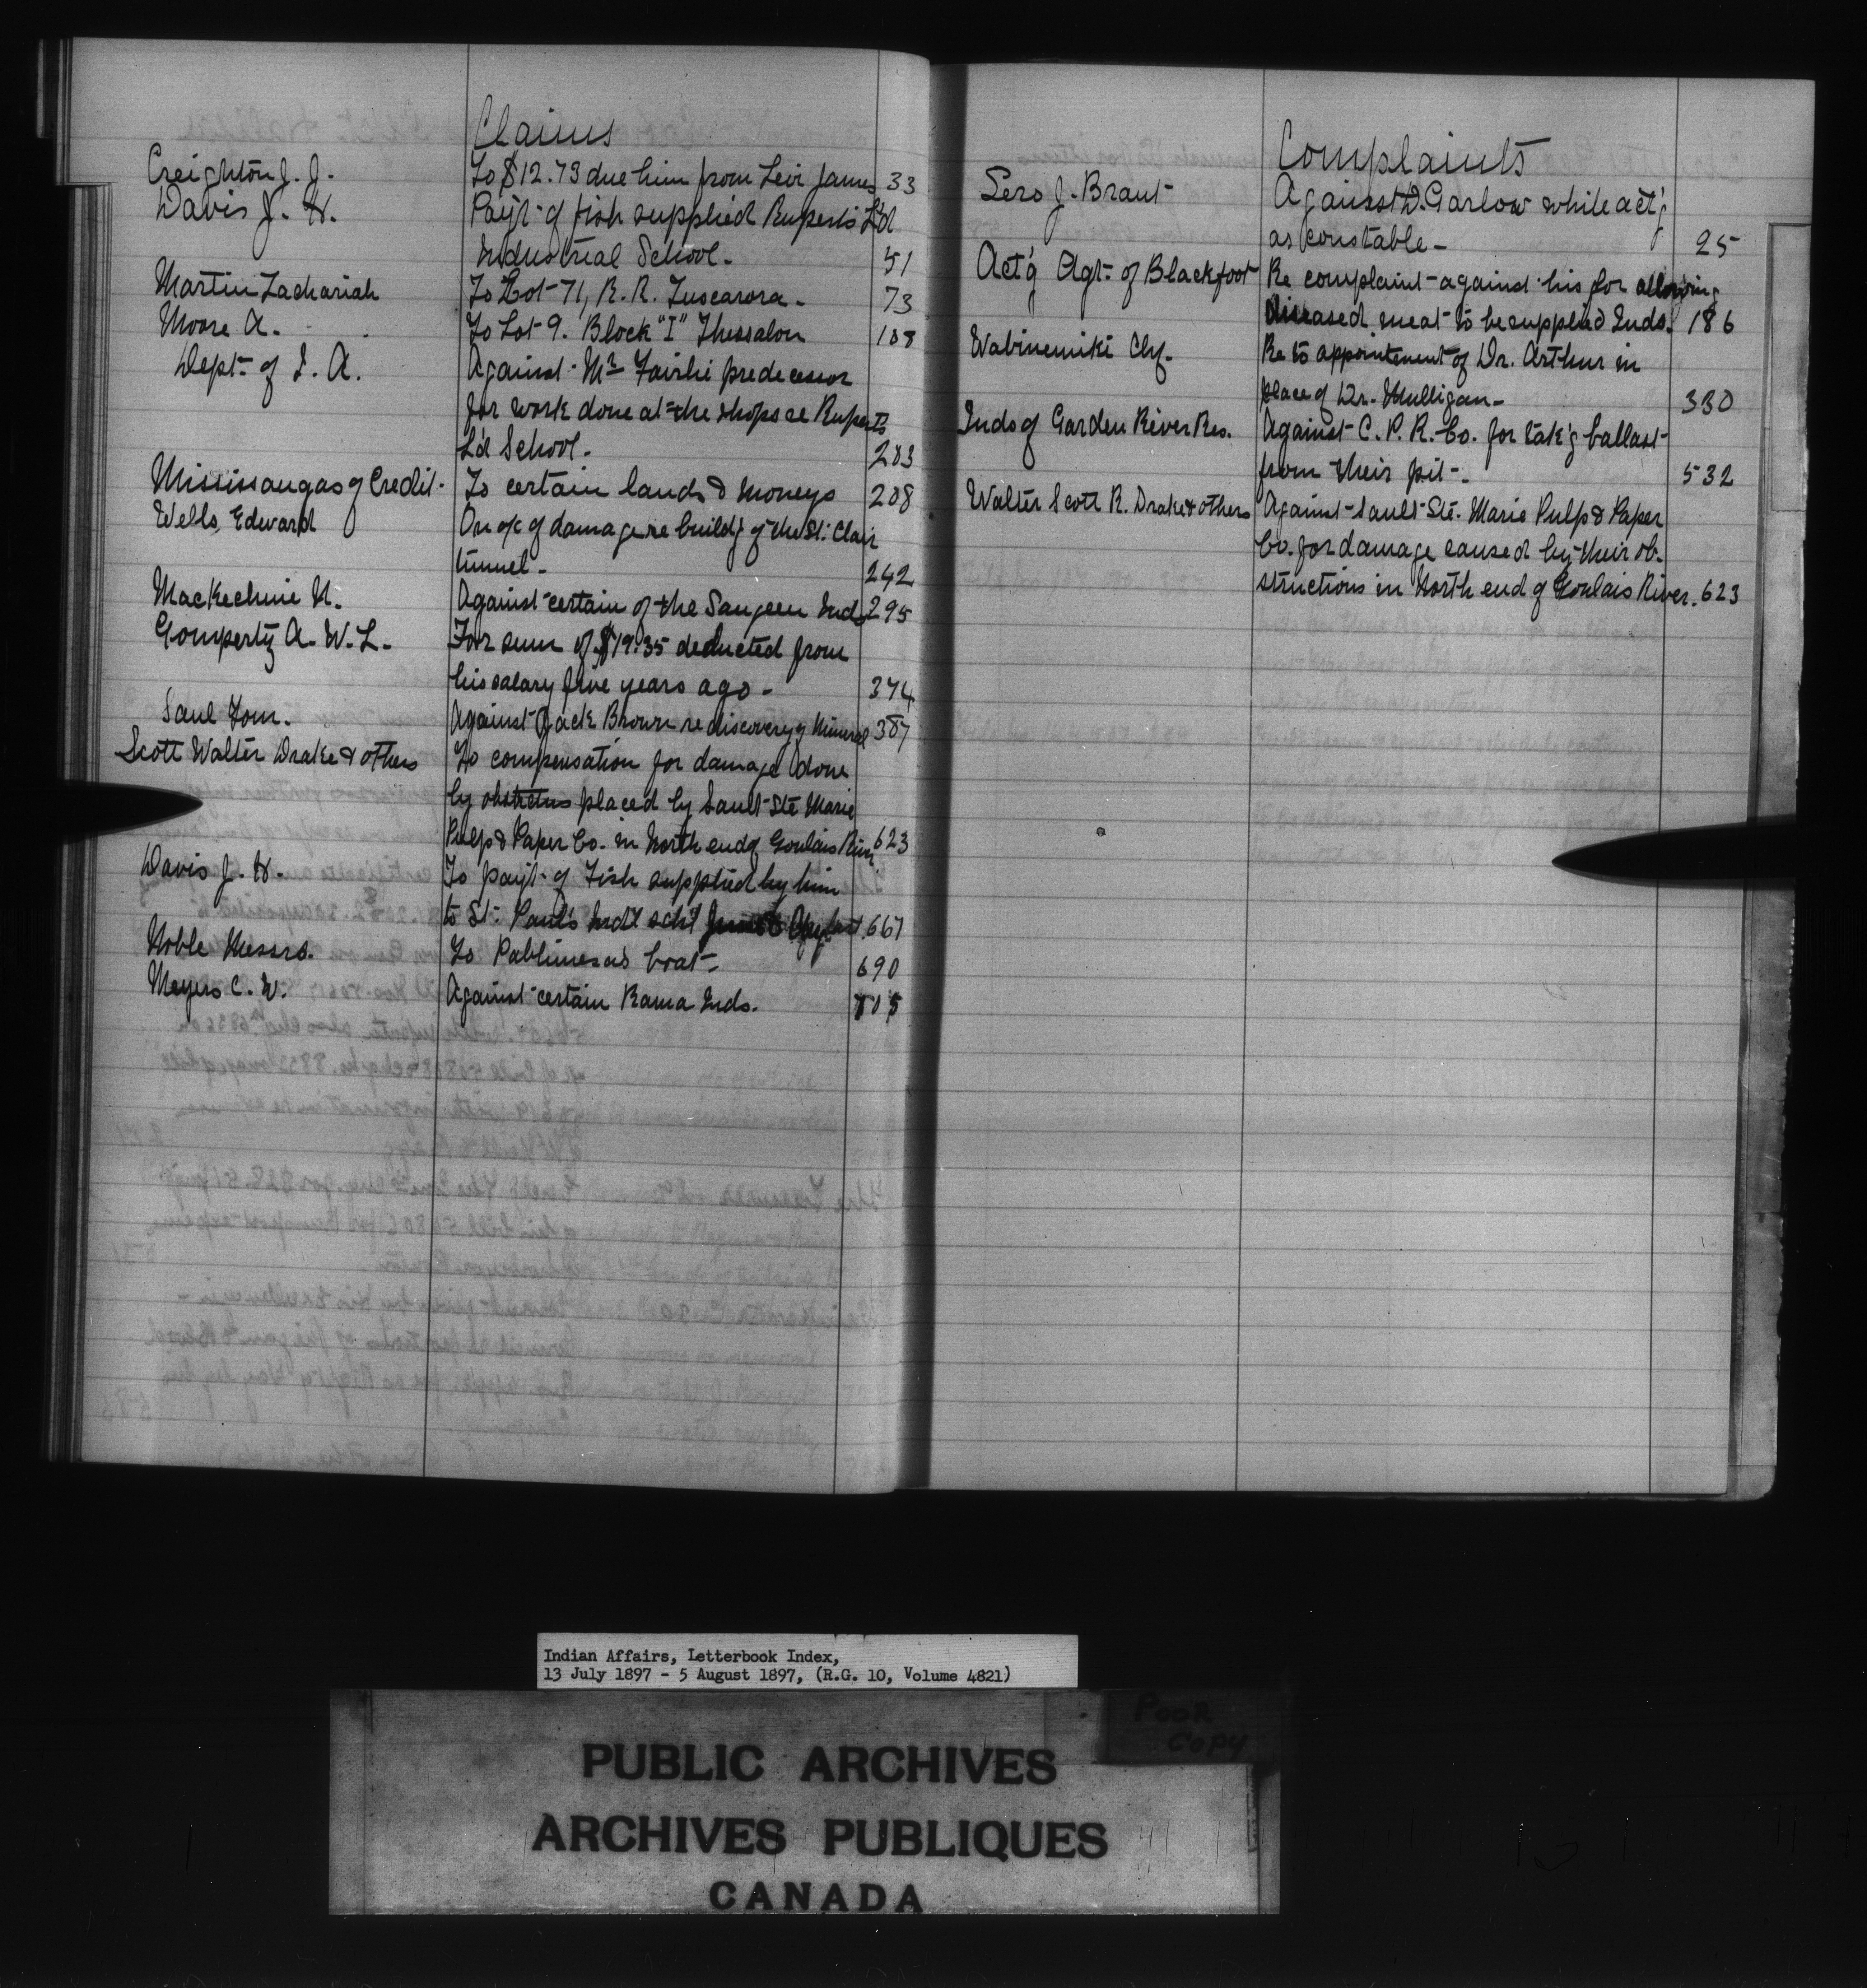 Claims
Creighton J. J. To $12.73 due him from Levi James 33
Davis J. H. Paym't of fish supplied Rupert's L'd
Industrial School. 51
Martin Zachariah To Lot 71, R. R. Tuscarora. 73
Moore A. To Lot 9. Block "I" Thessalon 108
Dept. of I. A. Against Mr Fairlie predecessor
for work done at the shops re Ruperts
L'd School. 203
Mississaugas of Credit. To certain lands & moneys 208
Wells, Edward On a/c of damage re build'g of the St. Clair
tunnel. 242
MacKechnie N. Against certain of the Saugeen Inds 295
Gompertz A. W. L. For sum of $19.35 deducted from
his salary five years ago. 374
Saul Tom. Against Jack Brown re discovery of mineral 387
Scott Walter Drake & others To compensation for damage done
by placed by Sault Ste Marie
Pulp & Paper Co. in North end of Goulais River 623
Davis J. H. To paym't of Fish supplied by him
to St. Paul's Ind'l sch'l 667
Noble Messrs. To boat. 690
Meyers C. W. Against certain Rama Inds. 705
Complaints
Sero J. Brant Against D. Garlow while act'g
as constable. 25
Act'g Agt. of Blackfoot Re complaint against his for allowing
diseased meat to be supplied Inds. 186
Wabinemiki Chf. Re to appointement of Dr. Arthur in
place of Dr. Mulligan. 330
Inds of Garden River Res. Against C. P. R. Co. for tak'g ballast
from their pit. 532
Walter Scott R. Drake & others Against Sault Ste. Marie Pulp & Paper
Co. for damage caused by their ob-
structions in North end of Goulais River. 623
Indian Affairs, Letterbook Index,
13 July 1897 - 5 August 1897, (R.G. 10, Volume 4821)
POOR
COPY
PUBLIC ARCHIVES
ARCHIVES PUBLIQUES
CANADA